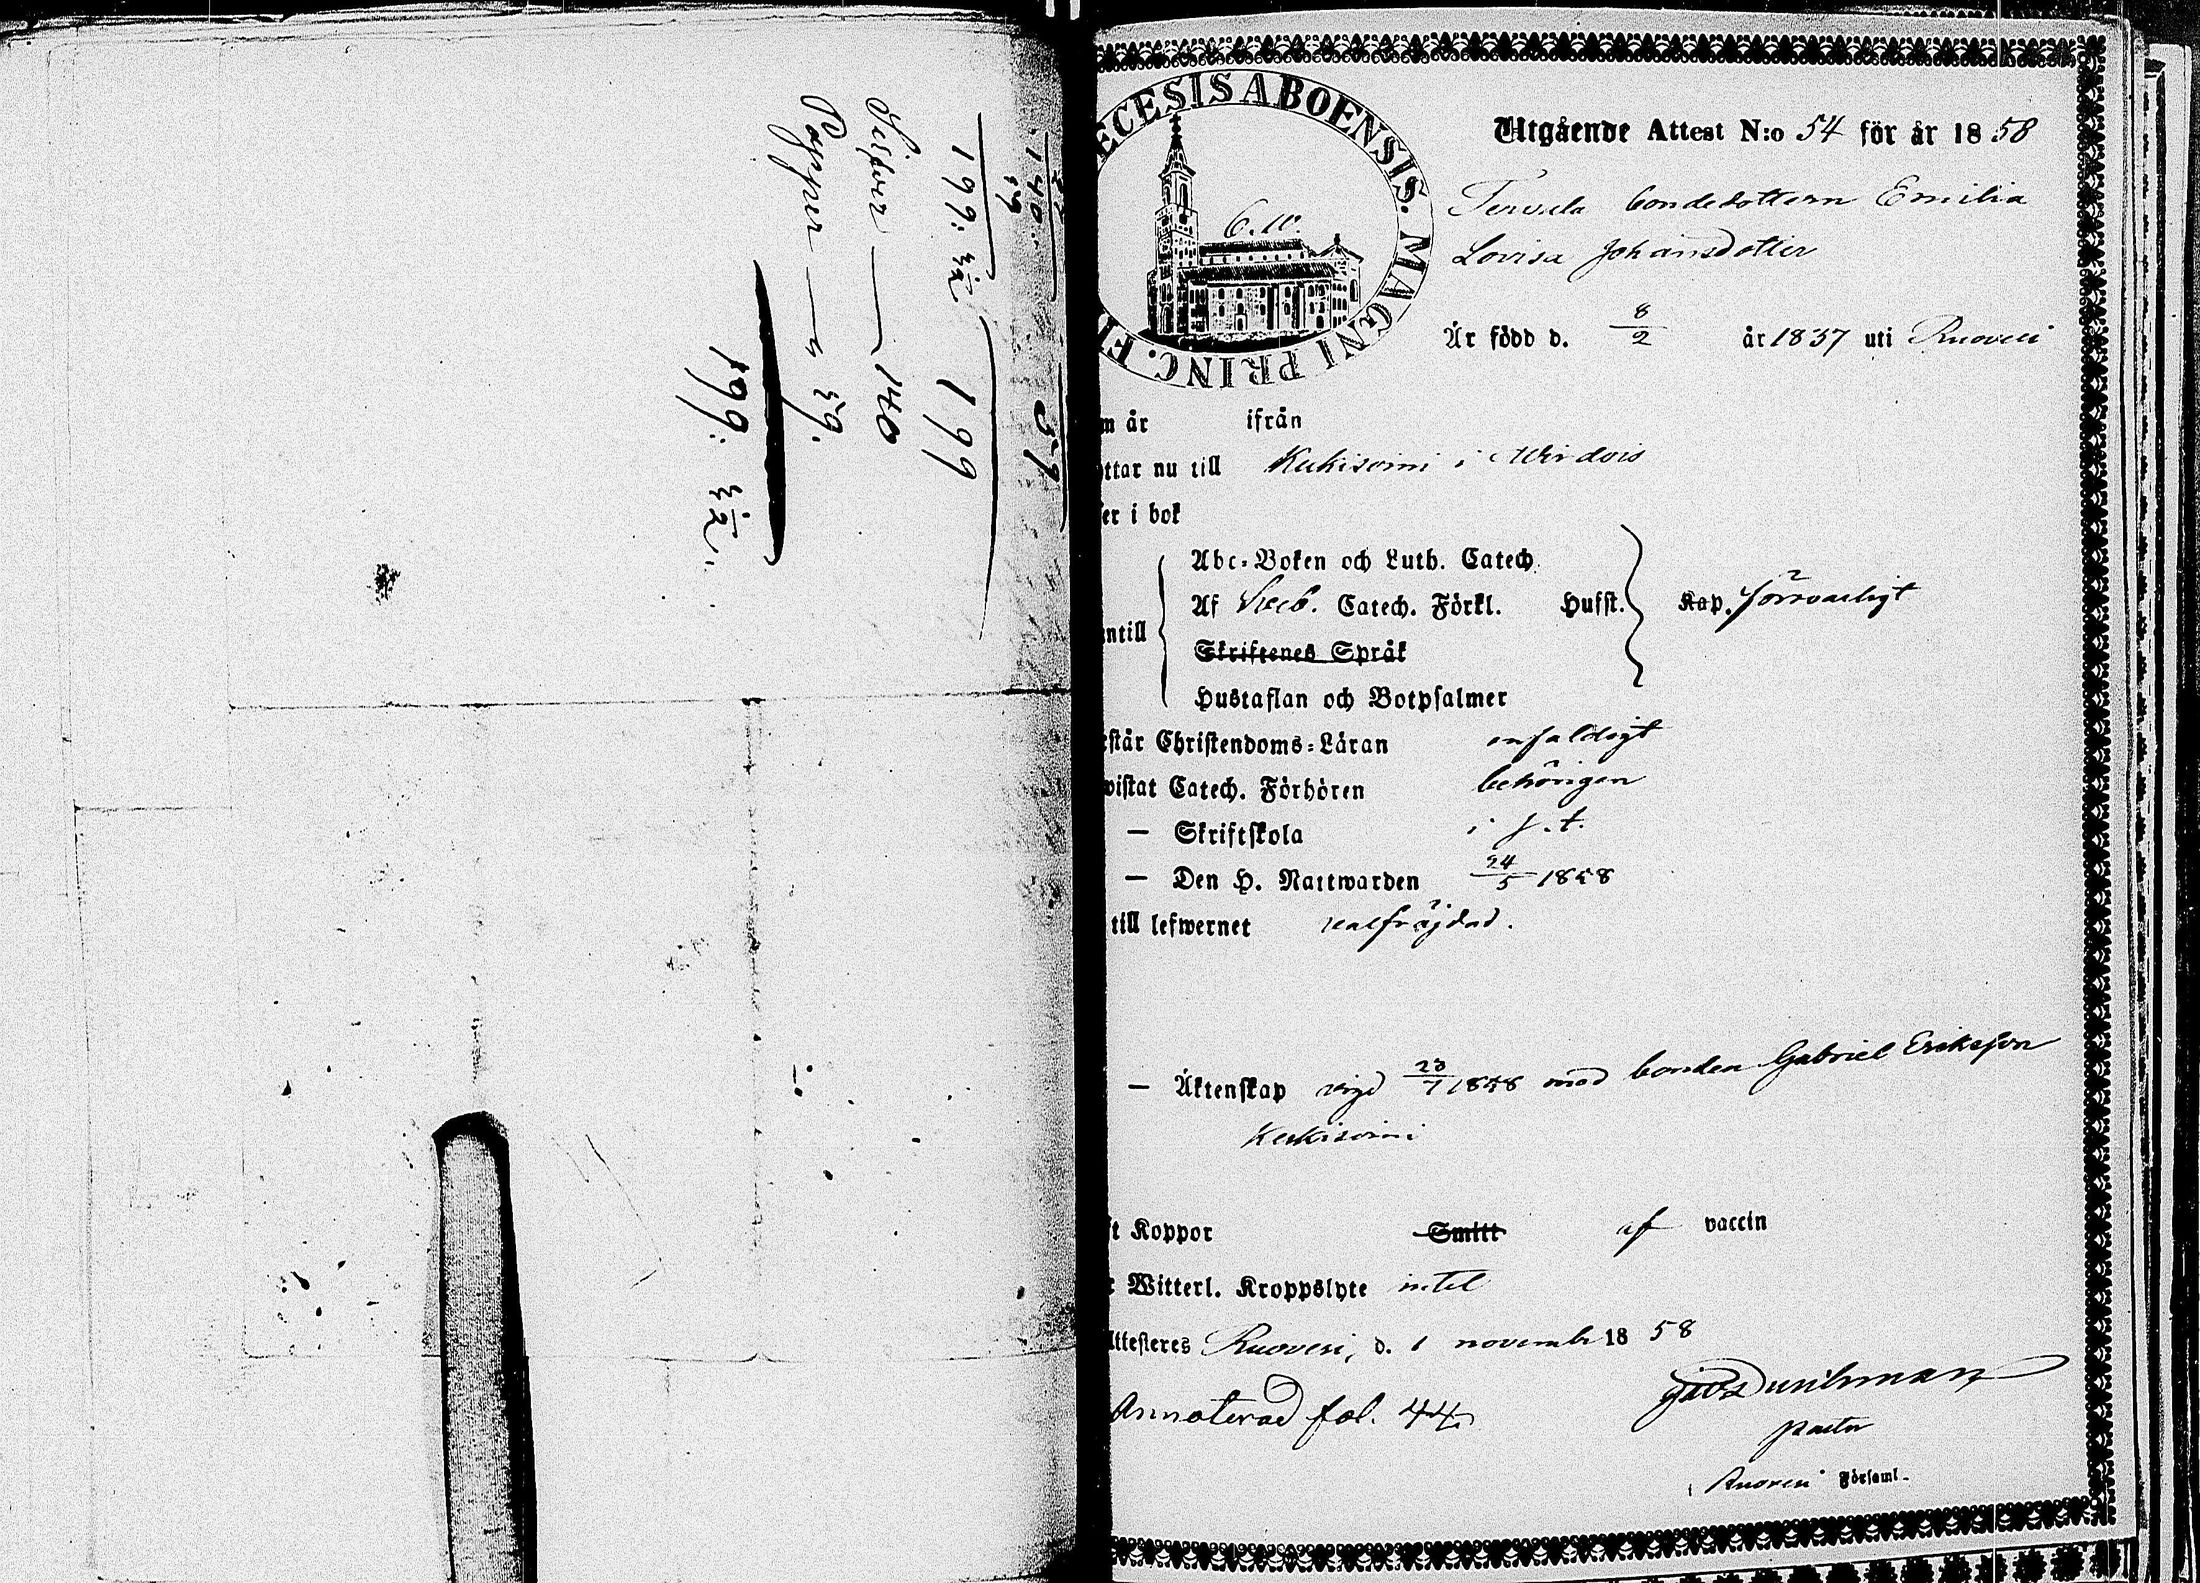 22
140. 59
59
199. ½ 199
Silfver — 140
Papper — " 59.
199: ½.
ECESIS ABOENSIS. MAGNI PRINC. FI
6.10.
Utgående Attest N:o 54 för år 1858
bondedottern Emilia
Lovisa Johansdotter
Är född d. 8/2 år 1837 uti Ruovesi
m år ifrån
ttar nu till Keikisoini i Wirdois
er i bok
Abc-Boken och Luth. Catech.
Af Sveb. Catech. Förkl. Husst. Kap. försvarligt
ntill
Skriftenes Språk
Hustaflan och Botpsalmer
står Christendoms-Läran enfaldigt
vistat Catech. Förhören behörigen
— Skriftskola i s. t.
— Den H. Nattwarden 24/5 1858
till lefwernet välfräjdad.
— Äktenskap vigd 23/7 1858 med bonden Gabriel Eriksson
Keikisoini
t Koppor Smitt af vaccin
r Witterl. Kroppslyte intet
ttesteres Ruovesi, d. 1 novembr 1858
Annoterad fol. 44.
pastor
Ruovesi Församl.